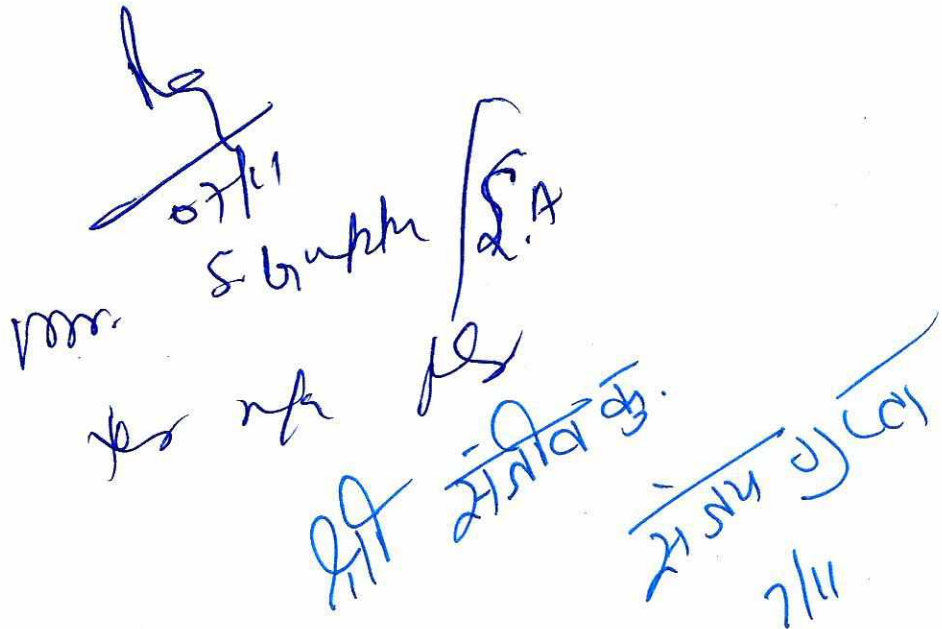 07/11
Mr. S. Gupta / S.A
for n/a pls
श्री संजीव कु.
संजय गुप्ता
7/11